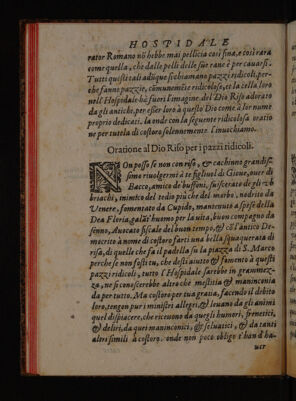 HOSPIDALE
rator Romano nō hebbe mai pellicia così fina, e così rara
come quella, che dalle pelli delle sue rane è per cauarsi.
Tutti questi tali adūque si chiamano pazzi ridicoli, per-
che fanno pazzie, cōmunemēte ridicolose, et la cella loro
nell'Hospidale hà fuori l'imagine del Dio Riso adorato
da gli antichi, per esser loro à questo Dio come à lor nume
proprio dedicati. la onde con la seguente ridicolosa oratio
ne per tutela di costoro solennemente l'inuochiamo.
Oratione al Dio Riso per i pazzi ridicoli.
NOn posso se non con riso, & cachinno grandis-
simo riuolgermi à te figliuol di Gioue, ouer di
Bacco, amico de buffoni, suiscerato de gli vb
briachi, inimico del tedio più che del morbo, nodrito da
Venere, fomentato da Cupido, mantenuto à spese della
Dea Floria, galāt'huomo per la vita, buon compagno da
senno, Auocato fiscale del buon tempo, & cō l'antico De-
mocrito à nome di costoro farti una bella squaquerata di
risa, di quelle che fà il padella sù la piazza di S. Marco
perche se non fosti tu, che desti aiuto & fomento à questi
pazzi ridicoli, tutto l'Hospidale sarebbe in gramez-
za, ne si conoscerebbe altro che mestitia & maninconia
da per tutto. Ma costoro per tua gratia, facendo il debito
loro, tengon pur i ministri allegri, & leuano da gli animi
quel dispiacere, che riceuono da quegli humori, frenetici,
& deliri, da quei maninconici, & seluatici, & da tanti
altri simili à costoro. onde non poco obligo t'han d'ha-
uer